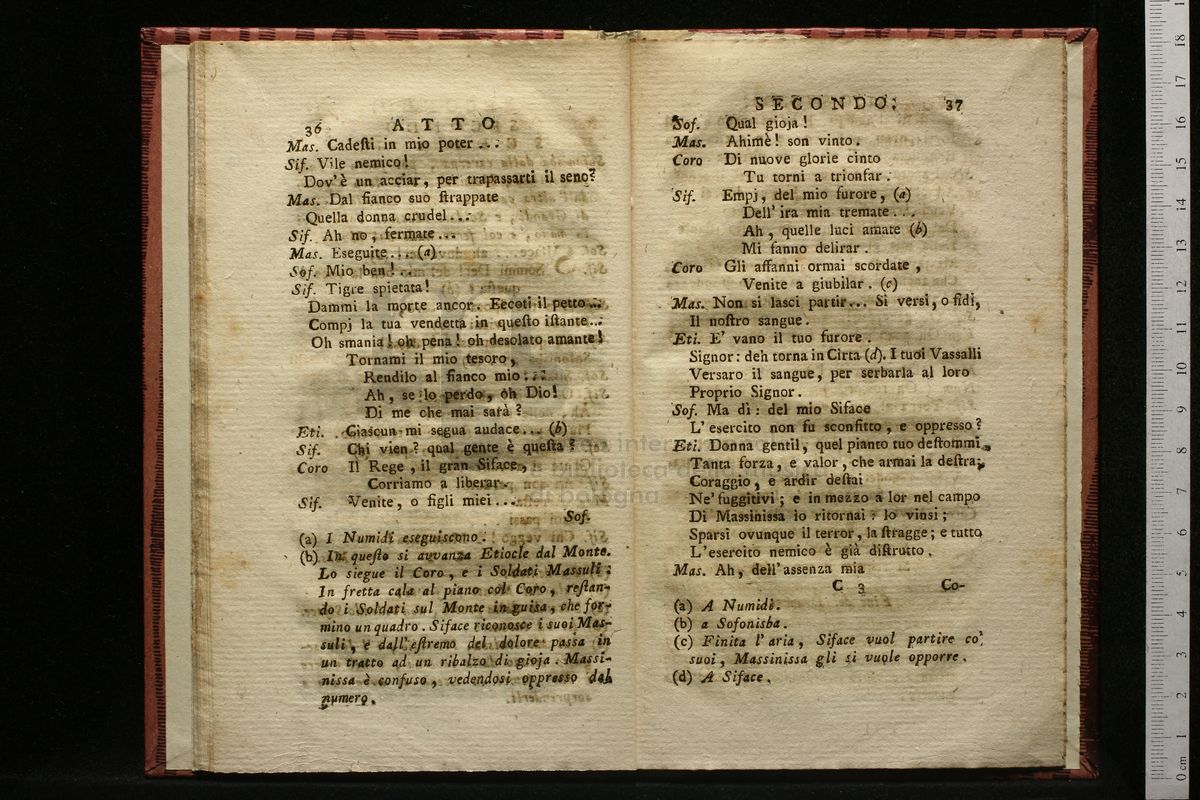 36 ATTO
Mas. Cadeſti in mio poter...
Sif. Vile nemico!
Dov'è un acciar, per trapassarti il seno?
Mas. Dal fianco suo ſtrappate
Quella donna crudel...
Sif. Ah no, fermate...
Mas. Eseguite... (a)
Sof. Mio ben!...
Sif. Tigre spietata!
Dammi la morte ancor. Eccoti il petto...
Compj la tua vendetta in queſto iſtante...
Oh smania! oh pena! oh desolato amante!
Tornami il mio tesoro,
Rendilo al fianco mio...
Ah, se lo perdo, oh Dio!
Di me che mai sarà?
Eti. Ciascun mi segua audace... (b)
Sif. Chi vien? qual gente è queſta?
Coro Il Rege, il gran Siface,
Corriamo a liberar.
Sif. Venite, o figli miei....
Sof.
(a) I Numidi eseguiscono.
(b) In queſto si avvanza Etiocle dal Monte.
Lo siegue il Coro, e i Soldati Massuli:
In fretta cala al piano col Coro, reſtan-
do i Soldati sul Monte in guisa, che for-
mino un quadro. Siface riconosce i suoi Mas-
suli, e dall'eſtremo del dolore passa in
un tratto ad un ribalzo di gioja. Massi-
nissa è confuso, vedendosi oppresso dal
numero.
SECONDO. 37
Sof. Qual gioja!
Mas. Ahimè! son vinto.
Coro Di nuove glorie cinto
Tu torni a trionfar.
Sif. Empj, del mio furore, (a)
Dell'ira mia tremate...
Ah, quelle luci amate (b)
Mi fanno delirar.
Coro Gli affanni ormai scordate,
Venite a giubilar. (c)
Mas. Non si lasci partir... Si versi, o fidi,
Il noſtro sangue.
Eti. E' vano il tuo furore.
Signor: deh torna in Cirta (d). I tuoi Vassalli
Versaro il sangue, per serbarla al loro
Proprio Signor.
Sof. Ma dì: del mio Siface
L'esercito non fu sconfitto, e oppresso?
Eti. Donna gentil, quel pianto tuo deſtommi
Tanta forza, e valor, che armai la deſtra;
Coraggio, e ardir deſtai
Ne' fuggitivi; e in mezzo a lor nel campo
Di Massinissa io ritornai: lo vinsi;
Sparsi ovunque il terror, la ſtragge; e tutto
L'esercito nemico è già diſtrutto.
Mas. Ah, dell'assenza mia
C 3 Co-
(a) A Numidi.
(b) a Sofonisba.
(c) Finita l'aria, Siface vuol partire co'
suoi, Massinissa gli si vuole opporre.
(d) A Siface.